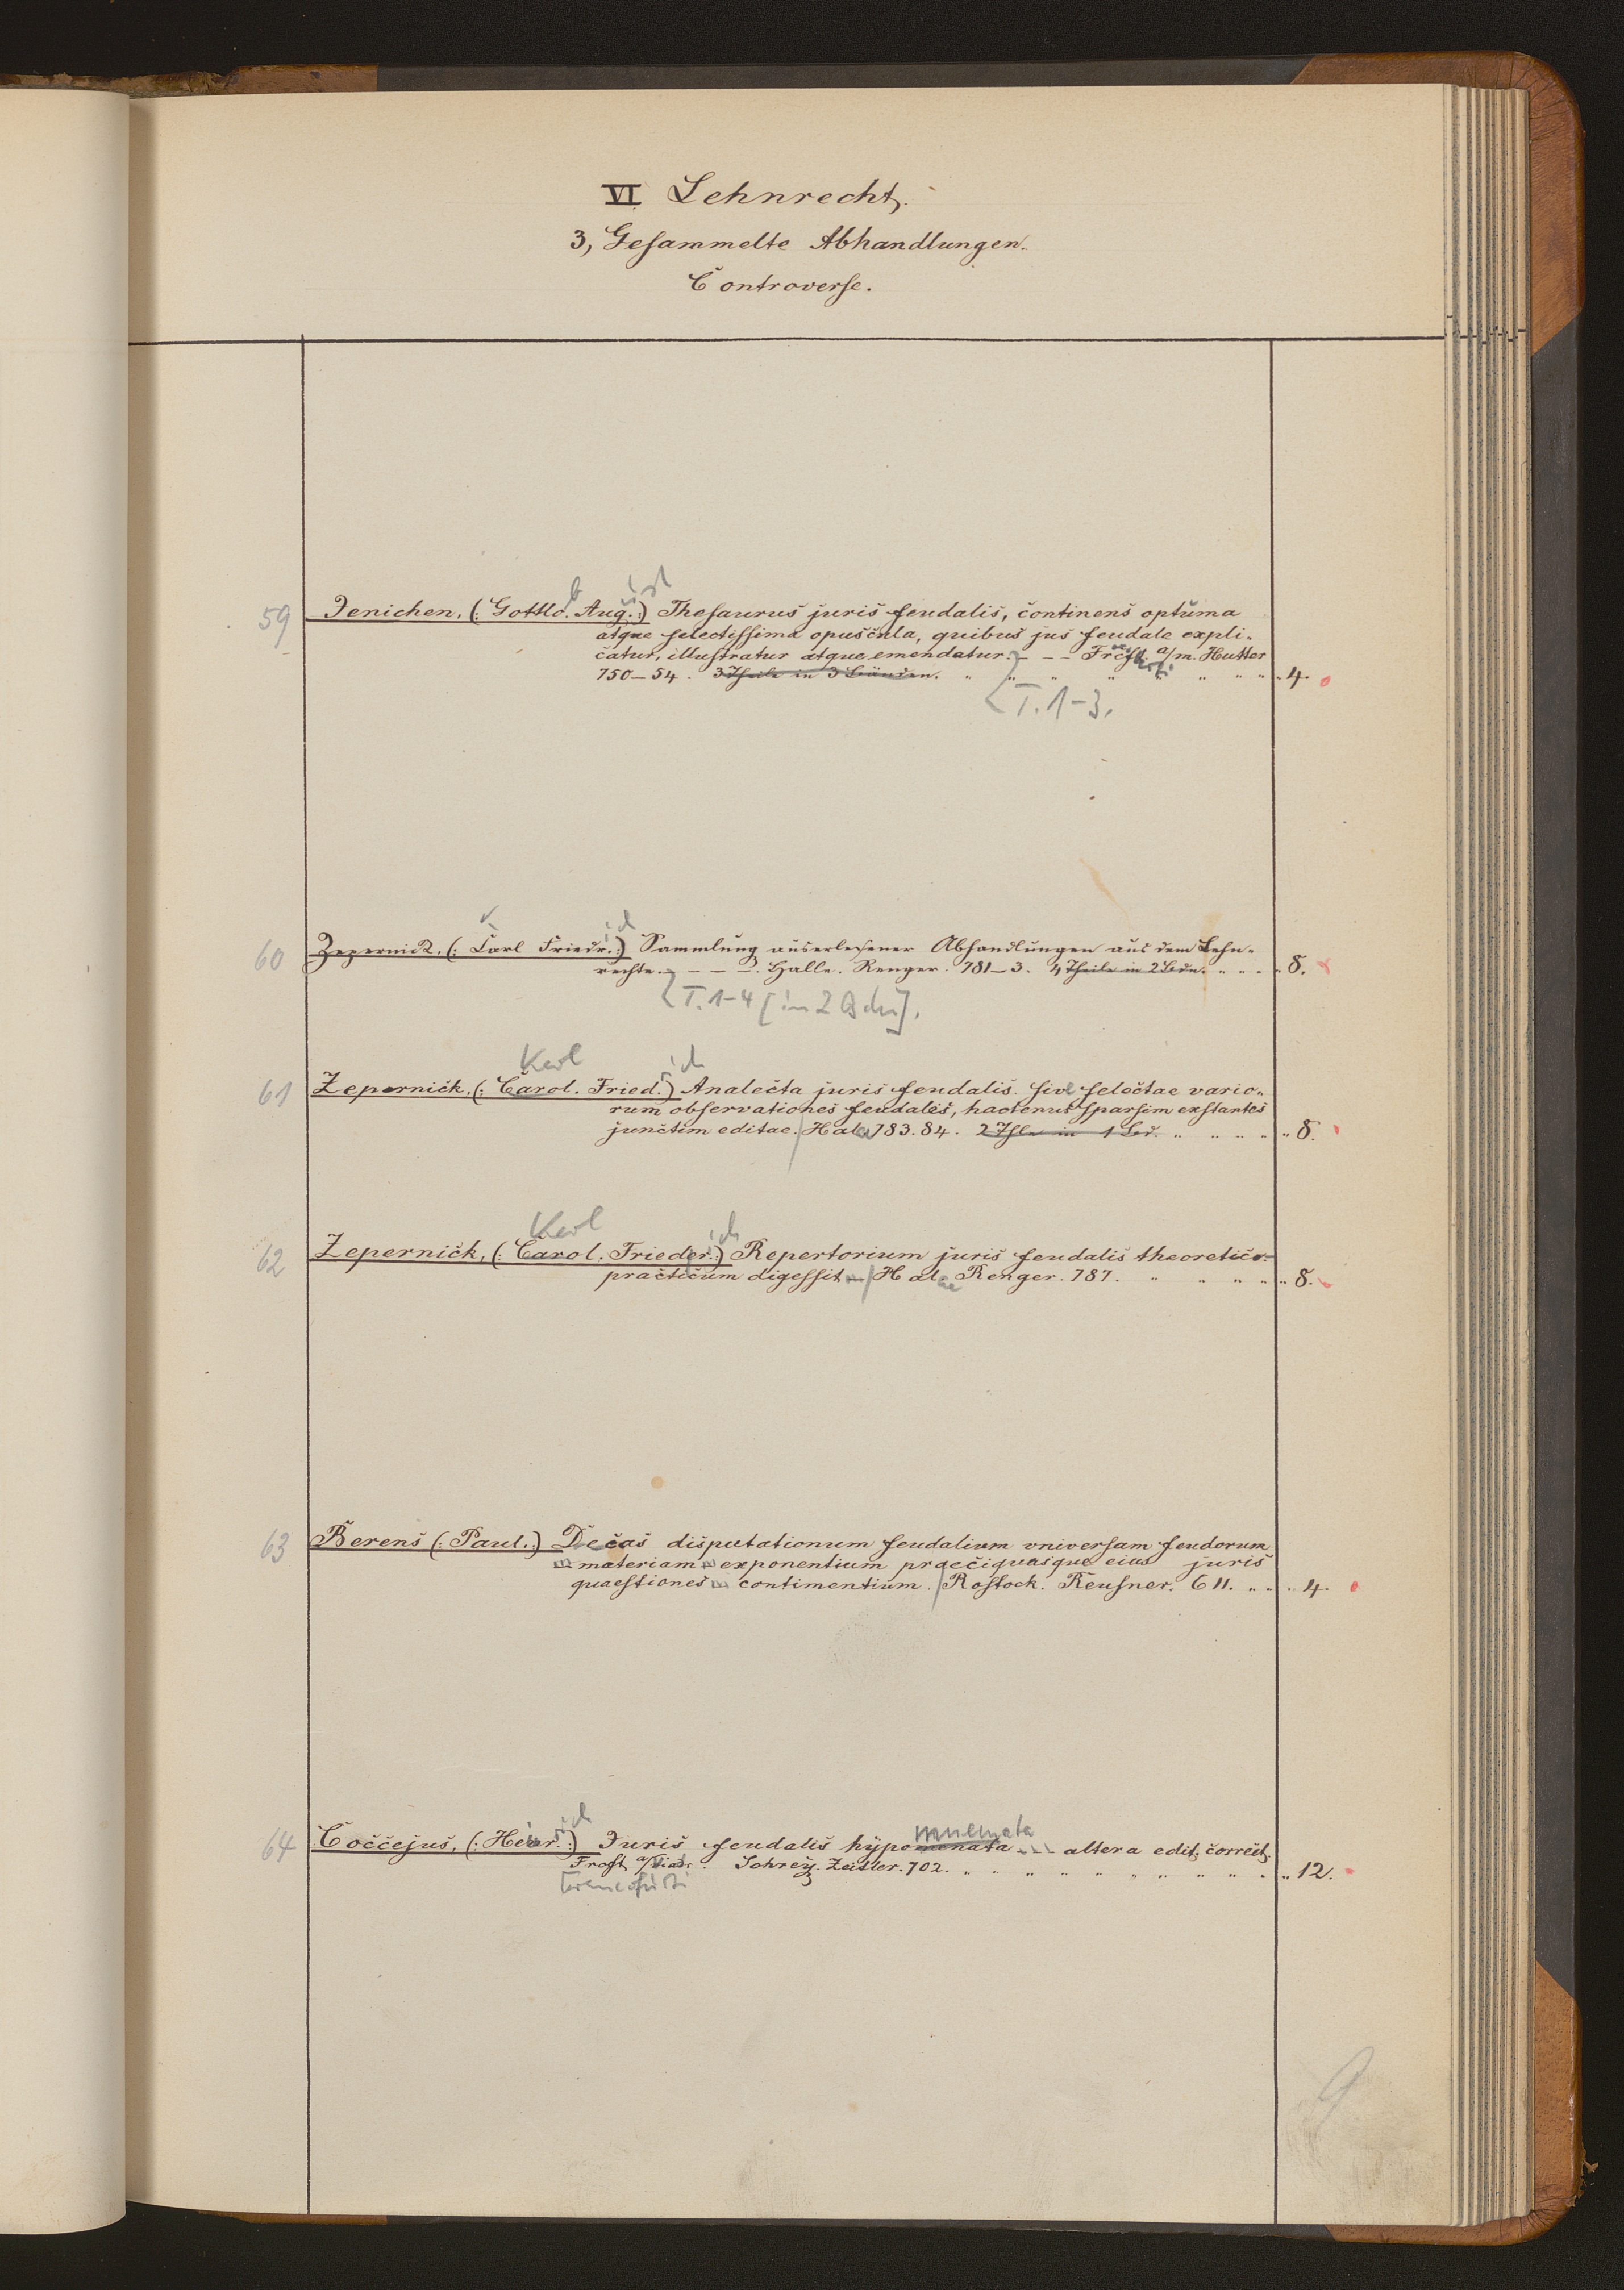 VI Lehnrecht.
3, Gesammelte Abhandlungen.
Controverse.
59 Jenichen, (: Gottlo. Aug. :) Thesaurus juris feudalis, continens optuma
b ist
atque selectissima opuscula, quibus jus feudale expli-
catur, illustratur atque emendatur. - - - Frcft. a/m. Hutter
750-54. 3 Theile in 3 Bänden. 4.
T. 1-3.
60 Zepernick, (: Carl Friedr. :) Sammlung auserlesener Abhandlungen aus dem Lehn-
ich
rechte. - - - Halle. Renger. 781-3. 4 Theile in 2 Bdn. 8.
T. 1-4 [in 2 Bdn].
Karl ich
61 Zepernick, (: Carol. Fried. :) Analecta juris feudalis. sive selectae vario-
rum observationes feudales, hactenus sparsim exstantes
junctim editae. Halae 783.84. 2 Thle in 1 Bd. 8.
Karl ich
62 Zepernick, (: Carol. Frieder. :) Repertorium juris feudalis theoretico-
practicum digessit - Halae Renger. 787. 8.
63 Berens (: Paul. :) Decas disputationum feudalium vniversam feudorum
materiam exponentium praeciquasque eius juris
quaestiones contimentium. Rostock. Reusner. 611. 4.
ich mnemata
64 Coccejus, (: Heinr. :) Juris feudalis hypomenata - - - altera edit. correct.
Frcft a/Viadr. Schrey. Zeidler. 702. 12.
Francofurti
9